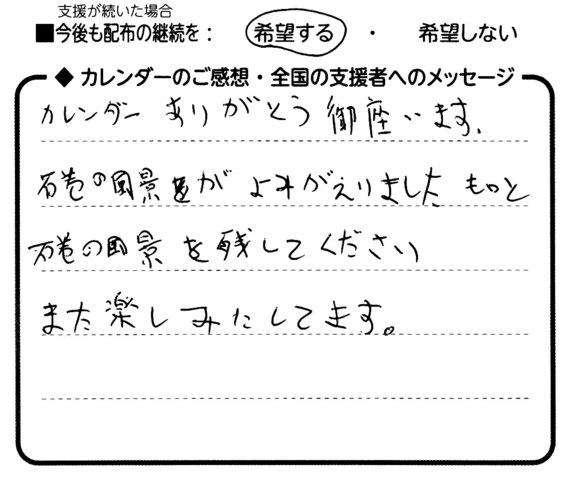 支援が続いた場合
■今後も配布の継続を： 希望する ・ 希望しない
◆ カレンダーのご感想・全国の支援者へのメッセージ
カレンダー ありがとう御座います.
石巻の風景が よみがえりました もっと
石巻の風景 を残してください
また楽しみにしてます。